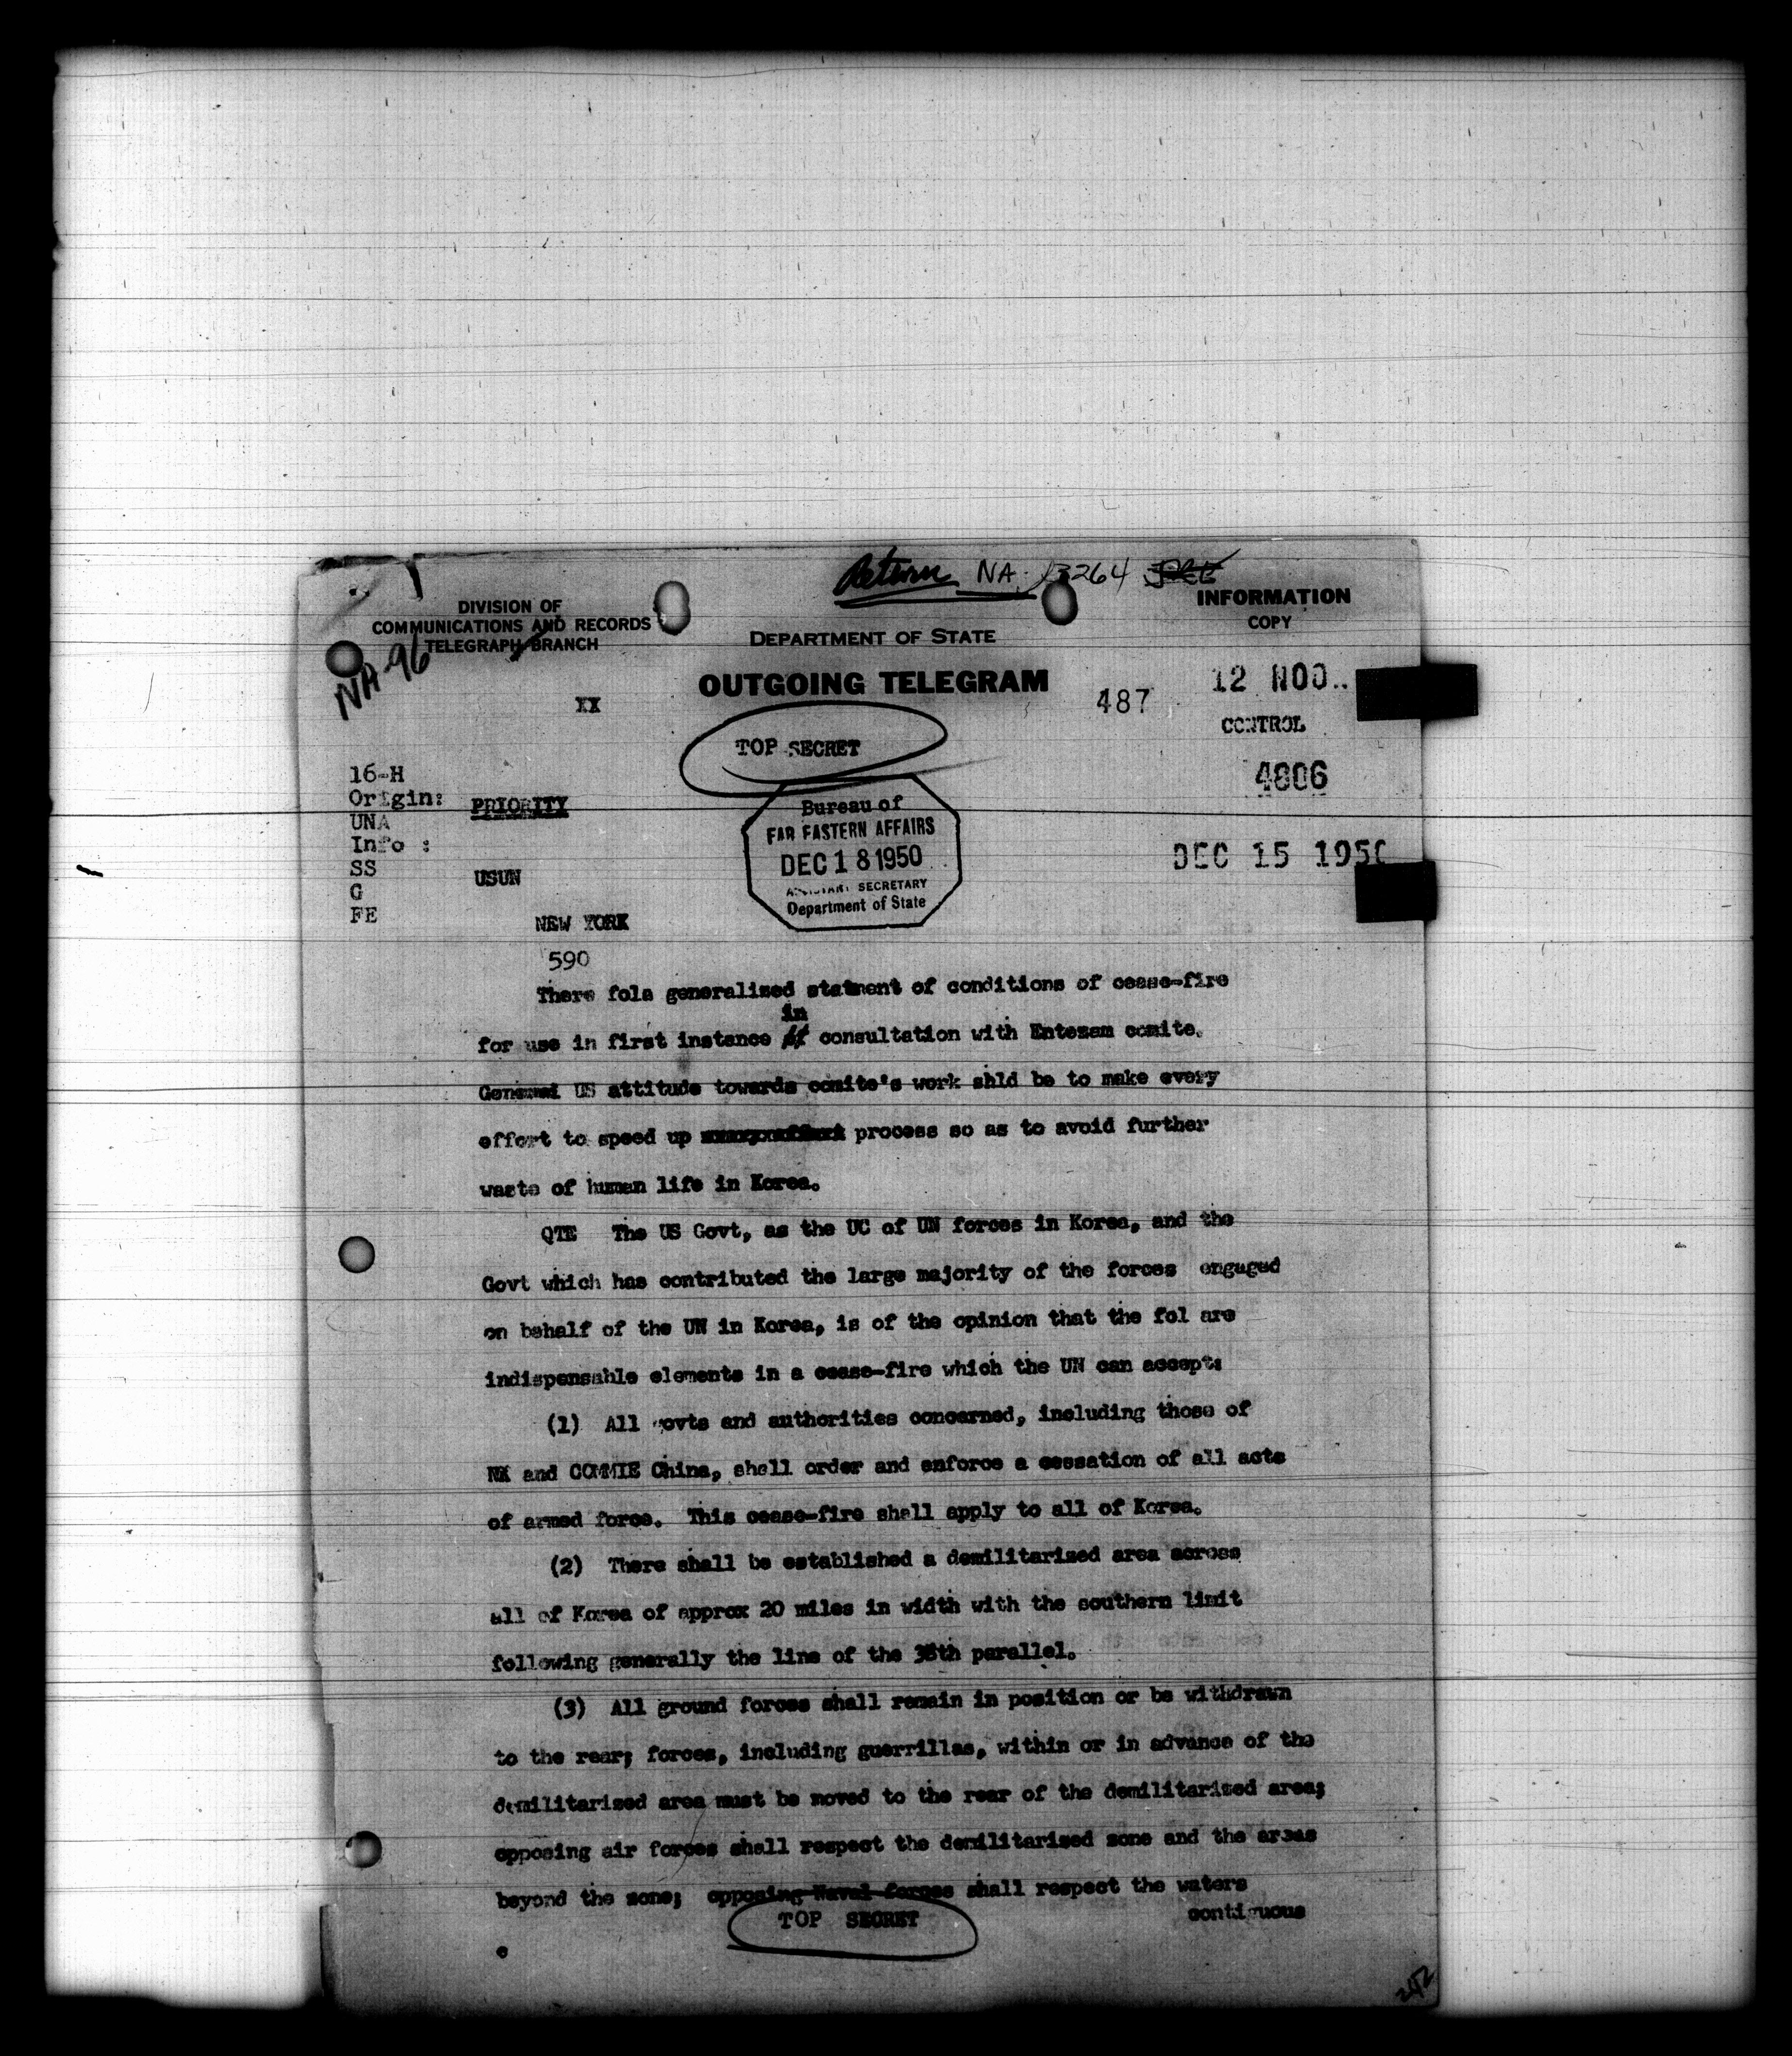 Return NA
INFORMATION
COPY
DIVISION OF
COMMUNICATIONS AND RECORDS
TELEGRAPH BRANCH
NA-96
DEPARTMENT OF STATE
OUTGOING TELEGRAM
XX
487
12 NOO
CONTROL
4806
DEC 15 1950
TOP SECRET
16-H
Origin:
UNA
Info :
SS
G
FE
PRIORITY
USUN
NEW YORK
590
Bureau of
FAR EASTERN AFFAIRS
DEC 18 1950
ASSISTANT SECRETARY
Department of State
There fols generalized statment of conditions of cease-fire
in
for use in first instance consultation with Entezam comite.
General US attitude towards comite's work shld be to make every
effort to speed up process so as to avoid further
waste of human life in Korea.
QTE The US Govt, as the UC of UN forces in Korea, and the
Govt which has contributed the large majority of the forces engaged
on behalf of the UN in Korea, is of the opinion that the fol are
indispensable elements in a cease-fire which the UN can accept:
(1) All govts and authorities concerned, including those of
NK and COMMIE China, shall order and enforce a cessation of all acts
of armed force. This cease-fire shall apply to all of Korea.
(2) There shall be established a demilitarized area across
all of Korea of approx 20 miles in width with the southern limit
following generally the line of the 38th parallel.
(3) All ground forces shall remain in position or be withdrawn
to the rear; forces, including guerrillas, within or in advance of the
demilitarized area must be moved to the rear of the demilitarized area;
opposing air forces shall respect the demilitarized zone and the areas
beyond the zone; opposing Naval forces shall respect the waters
contiguous
TOP SECRET